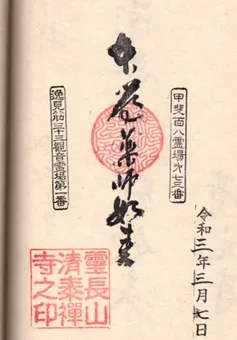 甲斐百八霊場第七三番
令和三年三月七日
薬師如来
逸見筋三十三観音霊場第一番
靈長山
清泰禪
寺之印